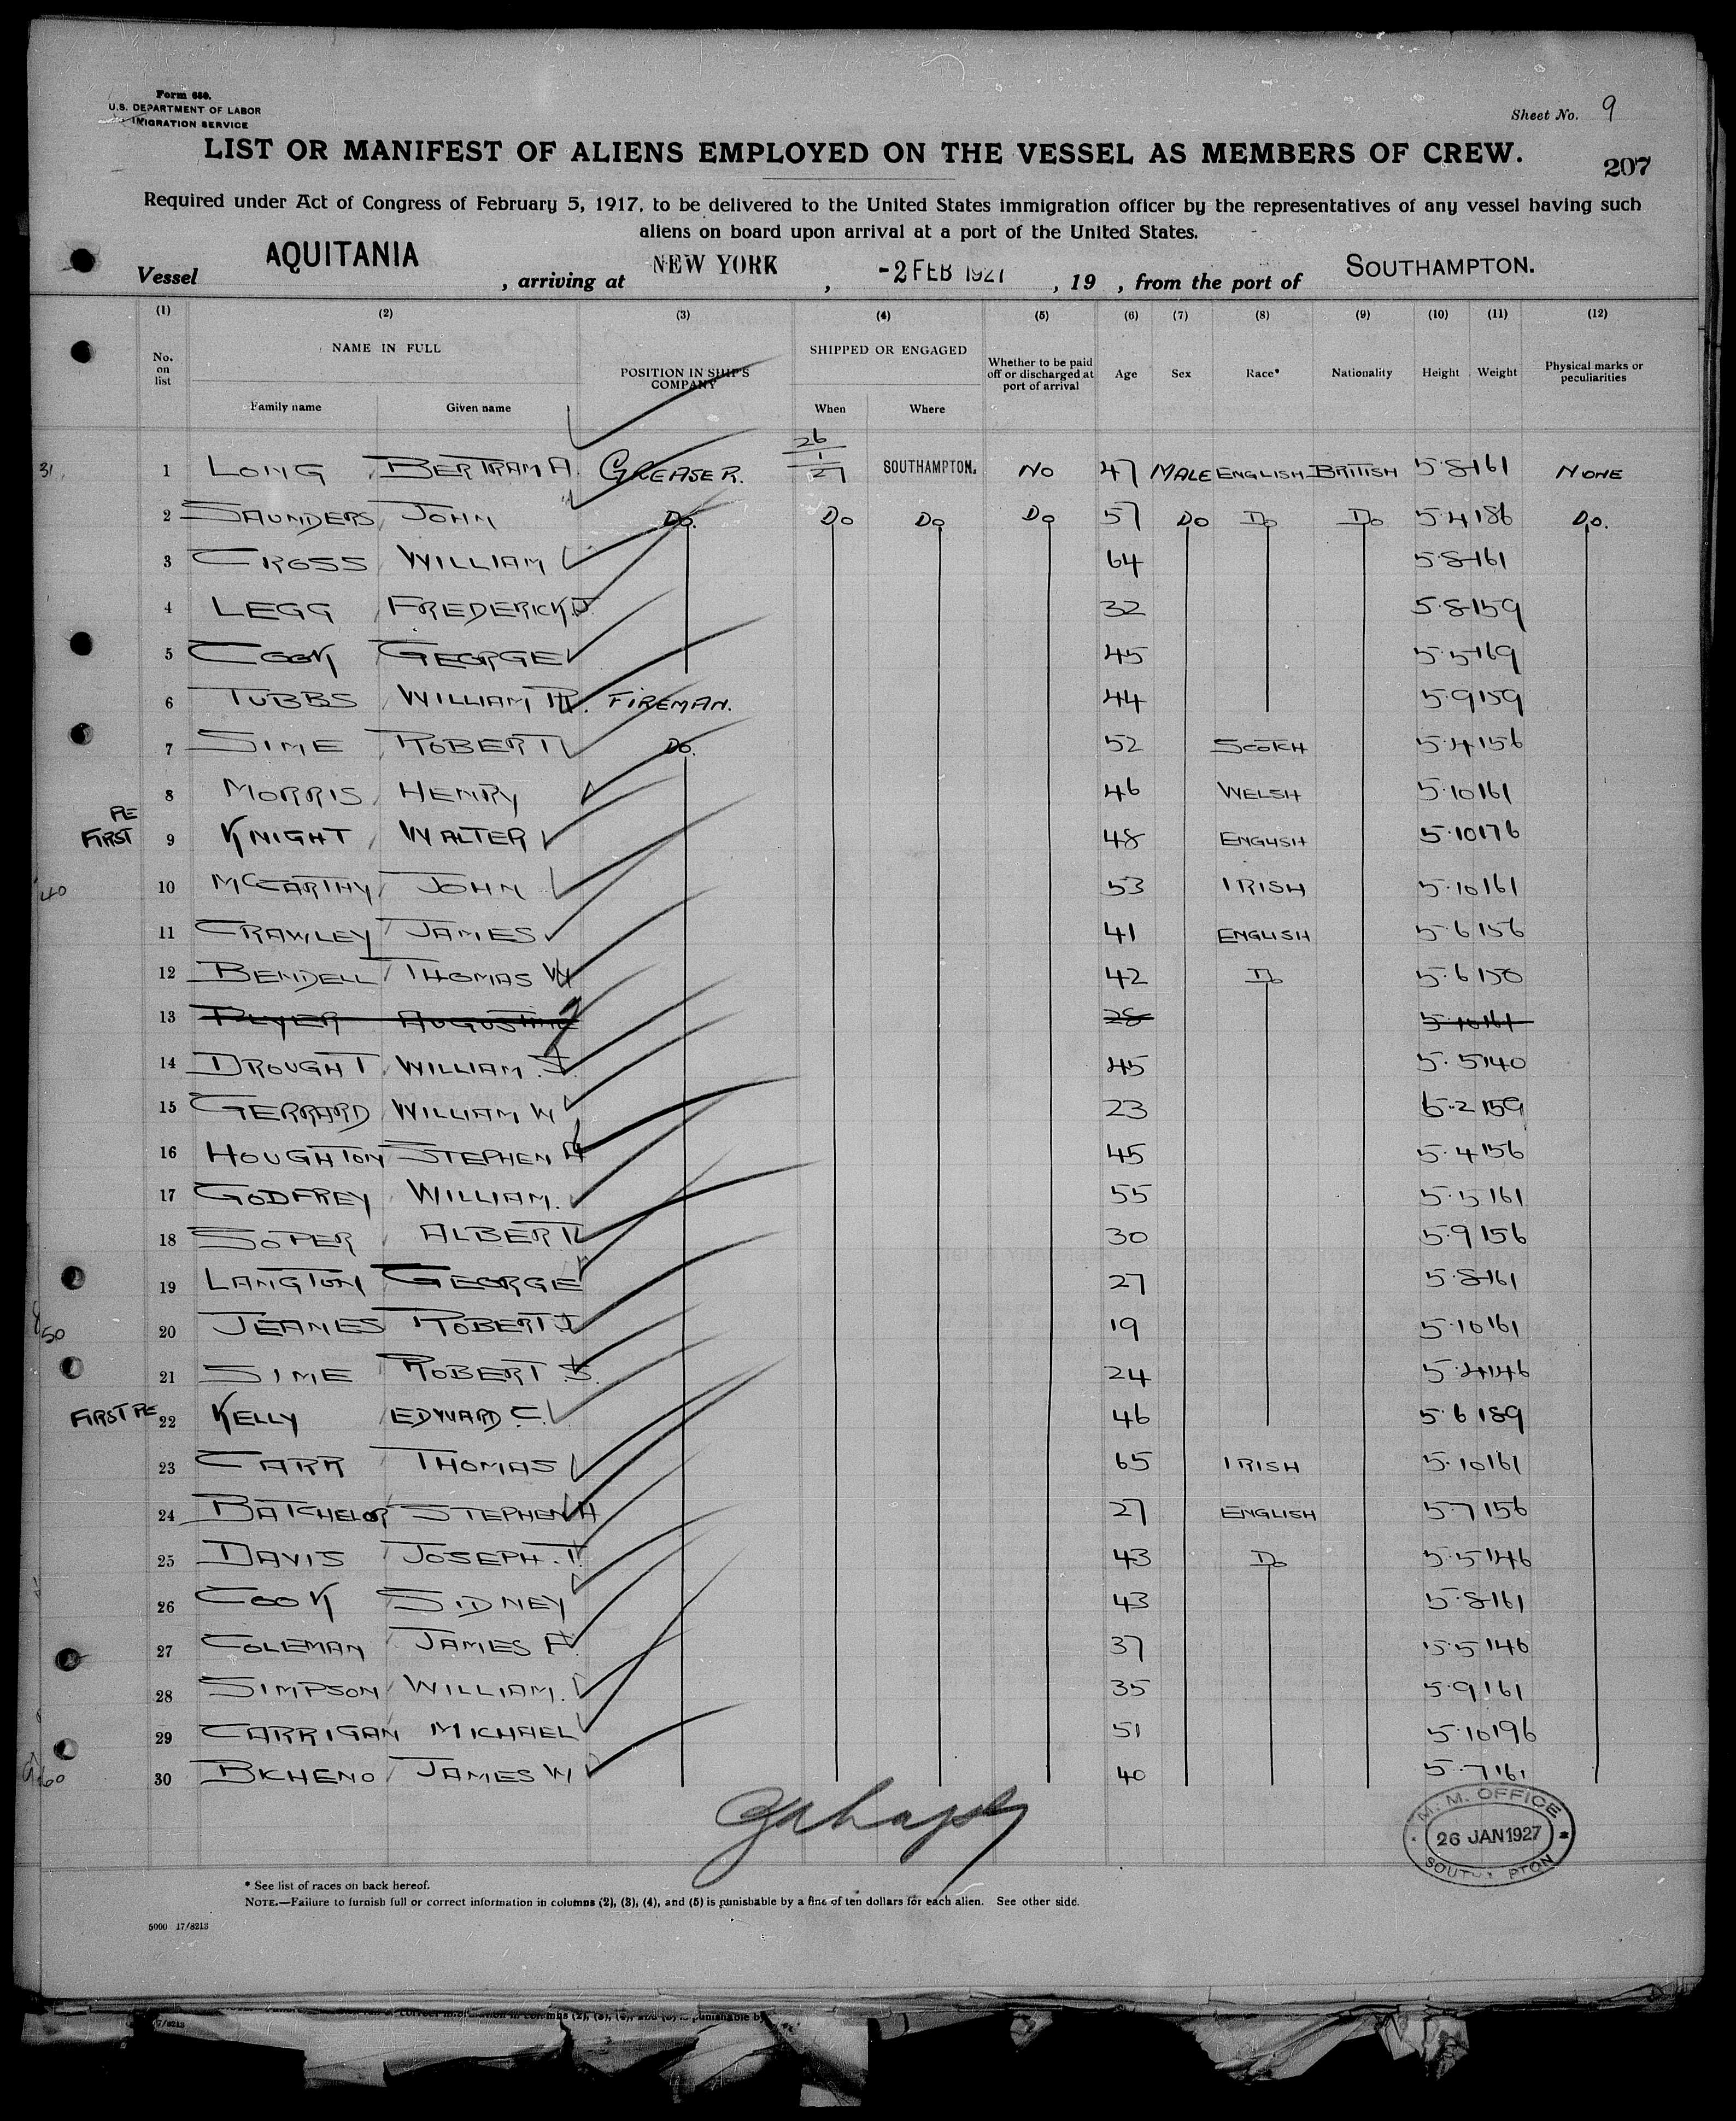 Form 680.
U.S. DEPARTMENT OF LABOR
IMIGRATION SERVICE
Sheet No. 9
LIST OR MANIFEST OF ALIENS EMPLOYED ON THE VESSEL AS MEMBERS OF CREW.
207
Required under Act of Congress of February 5, 1917, to be delivered to the United States immigration officer by the representatives of any vessel having such
aliens on board upon arrival at a port of the United States.
Vessel AQUITANIA , arriving at NEW YORK , -2 FEB 1927 , 19 , from the port of SOUTHAMPTON.
(1) (2) (3) (4) (5) (6) (7) (8) (9) (10) (11) (12)
No. on list NAME IN FULL Family name Given name POSITION IN SHIP'S COMPANY SHIPPED OR ENGAGED When Where Whether to be paid off or discharged at port of arrival Age Sex Race* Nationality Height Weight Physical marks or peculiarities
31 1 LONG BERTRAM A. GREASER. 26/1/27 SOUTHAMPTON. NO 47 MALE ENGLISH BRITISH 5·8 161 NONE
2 SAUNDERS JOHN DO. DO DO DO 57 DO DO DO 5·4 186 DO.
3 CROSS WILLIAM 64 5·8 161
4 LEGG FREDERICK J. 32 5·8 159
5 COOK GEORGE 45 5·5 169
6 TUBBS WILLIAM R. FIREMAN. 44 5·9 159
7 SIME ROBERT DO. 52 SCOTCH 5·4 156
8 MORRIS HENRY 46 WELSH 5·10 161
PE FIRST 9 KNIGHT WALTER 48 ENGLISH 5·10 176
40 10 McCARTHY JOHN 53 IRISH 5·10 161
11 CRAWLEY JAMES 41 ENGLISH 5·6 156
12 BENDELL THOMAS W 42 DO 5·6 150
13 AUGUSTINE 28 5·10 161
14 DROUGHT WILLIAM. J. 45 5·5 140
15 GERRARD WILLIAM W 23 6·2 159
16 HOUGHTON STEPHEN A 45 5·4 156
17 GODFREY WILLIAM. 55 5·5 161
18 SOPER ALBERT 30 5·9 156
19 LANGTON GEORGE 27 5·8 161
50 20 JEANES ROBERT J 19 5·10 161
21 SIME ROBERT S. 24 5·4 146
FIRST PE 22 KELLY EDWARD C. 46 5·6 189
23 CARR THOMAS 65 IRISH 5·10 161
24 BATCHELOR STEPHEN A 27 ENGLISH 5·7 156
25 DAVIS JOSEPH. T. 43 DO 5·5 146
26 COOK SIDNEY 43 5·8 161
27 COLEMAN JAMES 37 5·5 146
28 SIMPSON WILLIAM. 35 5·9 161
29 CARRIGAN MICHAEL 51 5·10 196
60 30 BICHENO JAMES W 40 5·7 161
M. M. OFFICE
26 JAN 1927
* See list of races on back hereof.
NOTE.—Failure to furnish full or correct information in columns (2), (3), (4), and (5) is punishable by a fine of ten dollars for each alien. See other side.
5000 17/8213
correct information in columns (2), (3), (4), and (5) is punishable by
7/8213